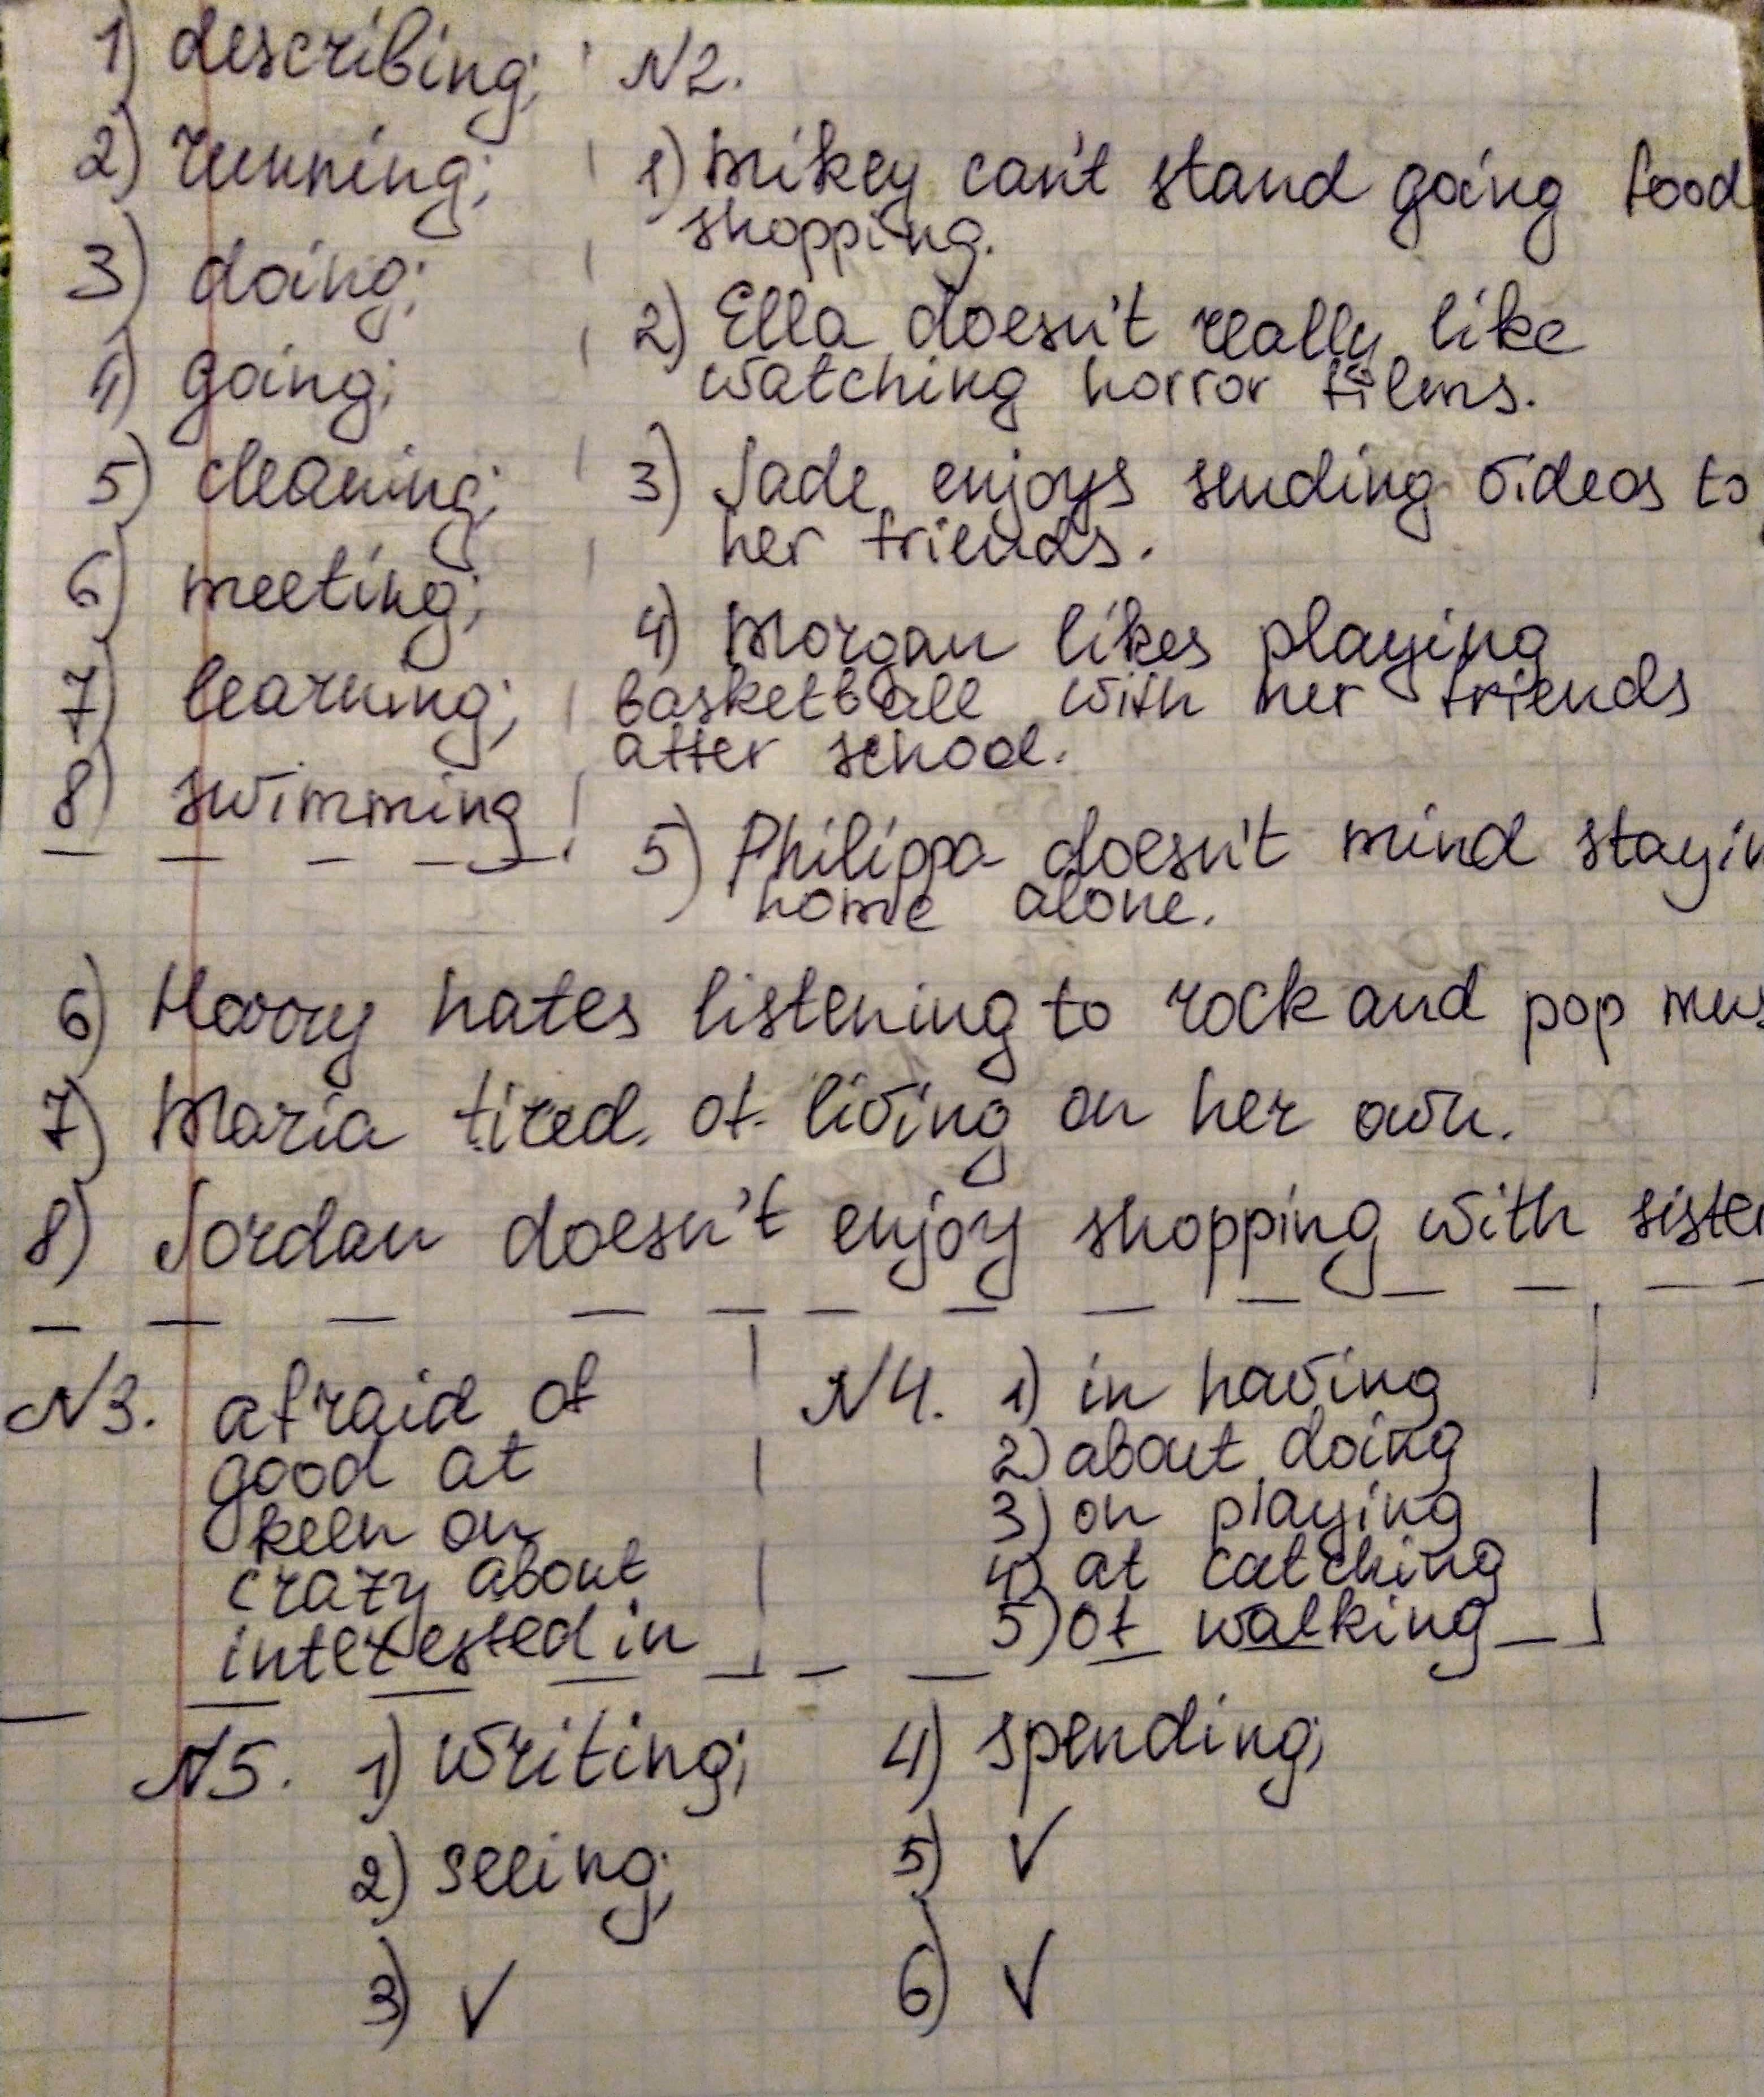 1) describing;
2) running;
3) doing;
4) going;
5) cleaning;
6) meeting;
7) learning;
8) swimming
N2.
1) Mikey can't stand going food
shopping.
2) Ella doesn't really like
watching horror films.
3) Jade enjoys sending videos to
her friends.
4) Morgan likes playing
basketball with her friends
after school.
5) Philippa doesn't mind stayin
home alone.
6) Harry hates listening to rock and pop mus
7) Maria tired of living on her own.
8) Jordan doesn't enjoy shopping with sister
N3. afraid of
good at
keen on
crazy about
interested in
N4. 1) in having
2) about doing
3) on playing
4) at catching
5) of walking
N5. 1) writing;
2) seeing;
3) ✓
4) spending;
5) ✓
6) ✓